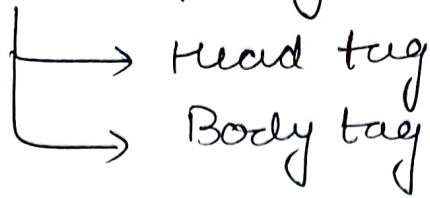 Head tag
Body tag